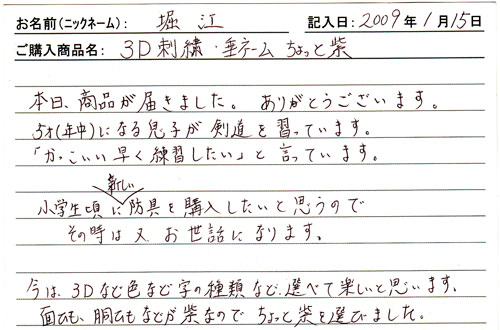 お名前(ニックネーム): 堀江 記入日: 2009年 1月 15日
ご購入商品名: 3D刺繍・垂ネーム ちょっと紫
本日、商品が届きました。 ありがとうございます。
5才(年中)になる息子が 剣道を習っています。
「かっこいい 早く練習したい」と 言っています。
新しい
小学生頃に 防具を購入したいと思うので
その時は又 お世話になります。
今は、3Dなど色など字の種類など、選べて楽しいと思います。
面ひも、胴ひもなどが紫なので ちょっと紫を選びました。